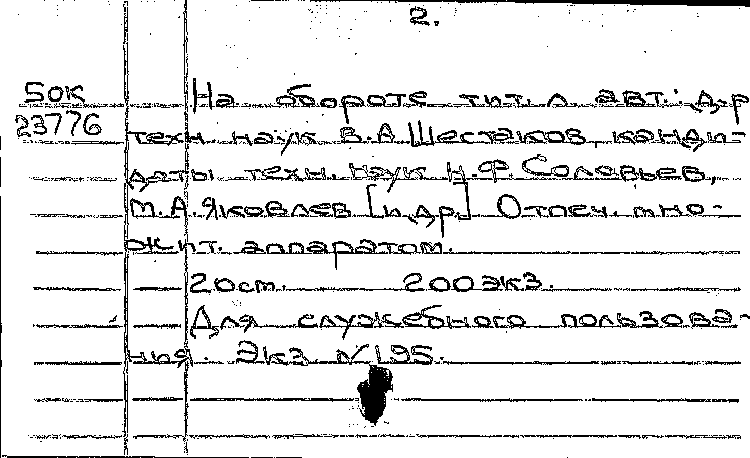 2.
50к На обороте тит. л. авт.: д-р
23776 техн. наук В.А.Шестаков, канди-
даты техн. наук Н.Ф.Соловьев,
М.А.Яковлев [и др.] Отпеч. мно-
жит. аппаратом.
20см. 200экз.
Для служебного пользова-
ния. Экз №195.